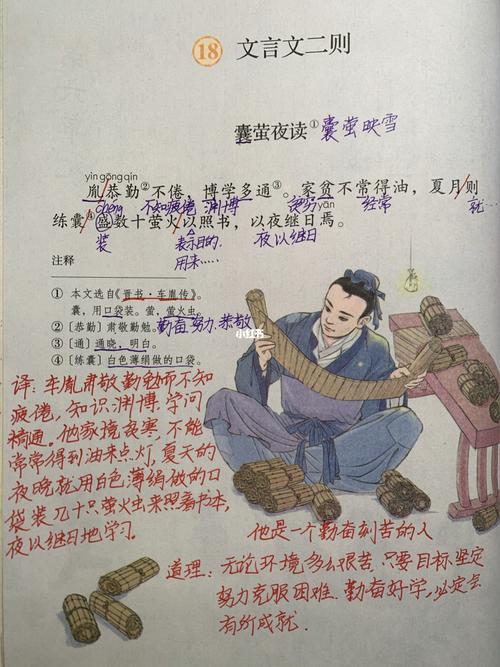 18 文言文二则
囊萤夜读① 囊萤映雪
yìn gōng qín
胤恭勤②不倦，博学多通③。家贫不常得油，夏月则
chéng 不知疲倦 渊博 贫穷 yàn 经常 就
练囊④盛数十萤火以照书，以夜继日焉。
装 表示目的. 夜以继日
用来……
注释
① 本文选自《晋书·车胤传》。
囊，用口袋装。萤，萤火虫。
②〔恭勤〕肃敬勤勉。勤奋努力，恭敬
③〔通〕通晓，明白。
④〔练囊〕白色薄绢做的口袋。
小红书
译：车胤肃敬勤勉而不知
疲倦，知识渊博，学问
精通。他家境贫寒，不能
常常得到油来点灯，夏天的
夜晚就用白色薄绢做的口
袋装几十只萤火虫来照着书本，
夜以继日地学习.
他是一个勤奋刻苦的人
道理：无论环境多么艰苦.只要目标坚定
努力克服困难.勤奋好学，必定会
有所成就.